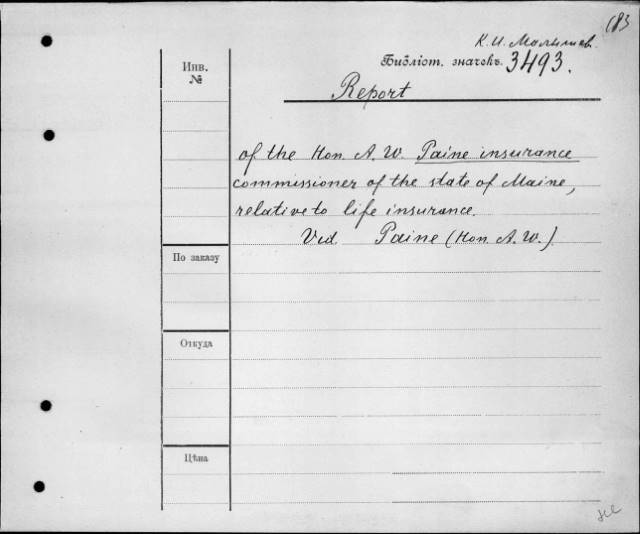 183
К. И. Малышев.
Библіот. значекъ. 3493.
Инв.
№
Report
of the Hon. A. W. Paine insurance
commissioner of the state of Maine,
relative to life insurance.
Vid. Paine (Hon. A. W.)
По заказу
Откуда
Цѣна